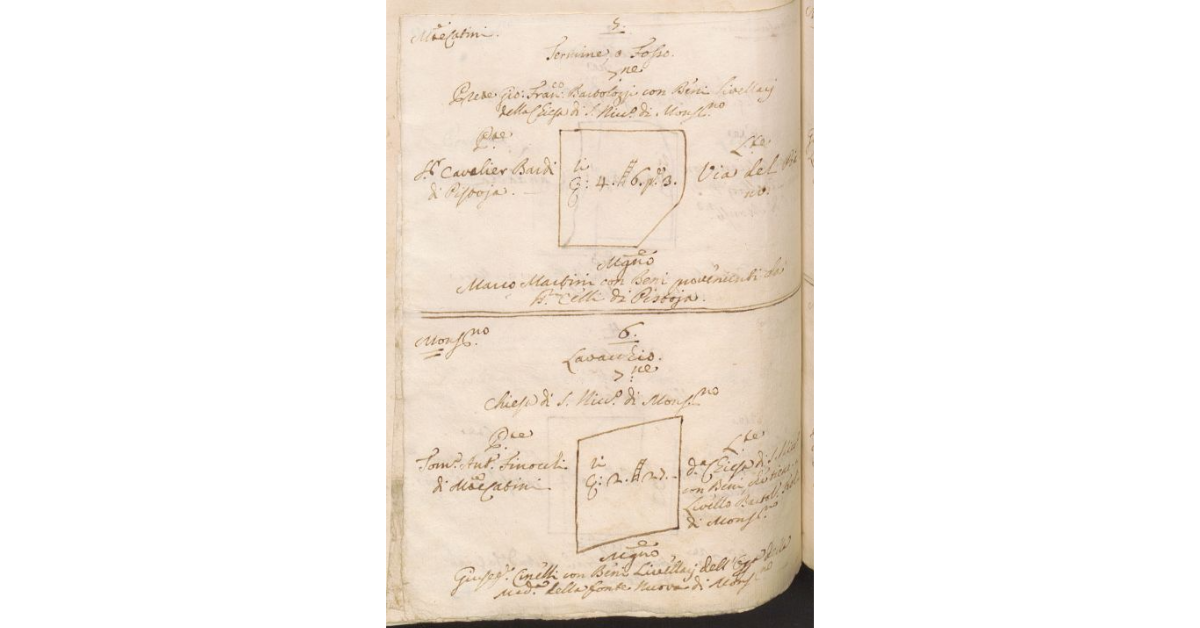 M.e Catini.
5.
Termine o Fosso.
>ne
Prete Gio: Fran.co Bartolozzi con Beni Livellarj
della Chiesa di S. Nicc.o di Mons.no
P.te
S.r Cavalier Bardi
di Pistoja.
C: 4. 6. p. 3.
L.te
Via del
no.
M.gno
Marco Martini con Beni provenienti da
Celli di Pistoja.
Mons.no
6.
Lavacchio.
>ne
Chiesa di S. Nicc.o di Mons.no
P.te
Tom.o Ant.o Finocchi
di M.e Catini
C: 2. 2.
L.te
d.a Chiesa di S. Nicc.o
con Beni
Livello Bartol.
di Mons.no
M.gno
Giusepp.e Cinelli con Beni Livellarj dell' della
Mad.a della Fonte Nuova di Mons.no